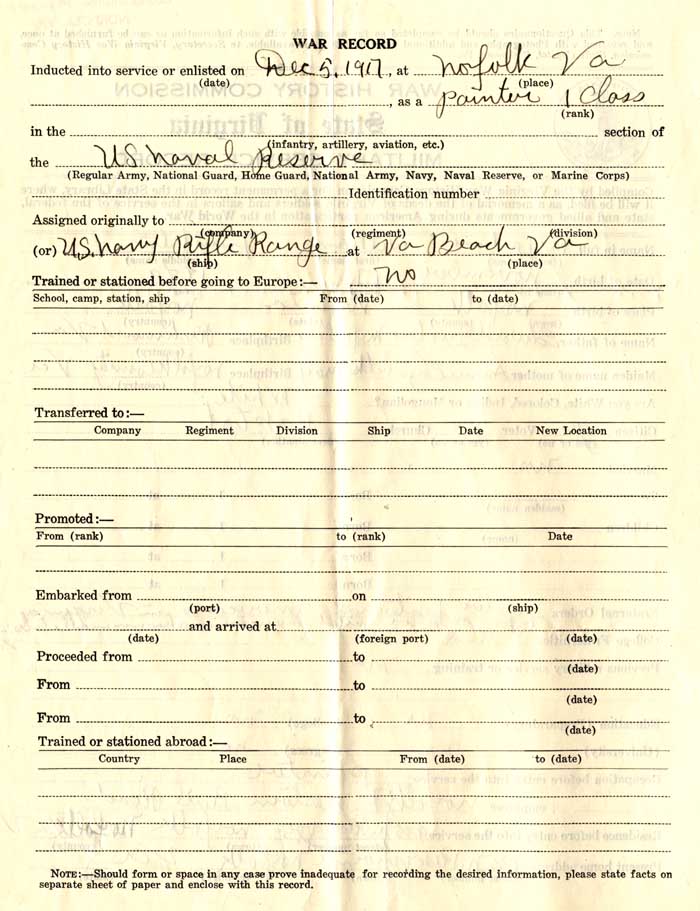 WAR RECORD
Inducted into service or enlisted on Dec 5, 1917, at Norfolk Va
(date) (place)
, as a painter 1 Class
(rank)
in the section of
(infantry, artillery, aviation, etc.)
the U.S. Naval Reserve
(Regular Army, National Guard, Home Guard, National Army, Navy, Naval Reserve, or Marine Corps)
Identification number
Assigned originally to
(company) (regiment) (division)
(or) U.S. Navy Rifle Range at Va Beach Va
(ship) (place)
Trained or stationed before going to Europe:— no
School, camp, station, ship From (date) to (date)
Transferred to:—
Company Regiment Division Ship Date New Location
Promoted:—
From (rank) to (rank) Date
Embarked from on
(port) (ship)
and arrived at
(date) (foreign port) (date)
Proceeded from to
(date)
From to
(date)
From to
(date)
Trained or stationed abroad:—
Country Place From (date) to (date)
NOTE:—Should form or space in any case prove inadequate for recording the desired information, please state facts on
separate sheet of paper and enclose with this record.